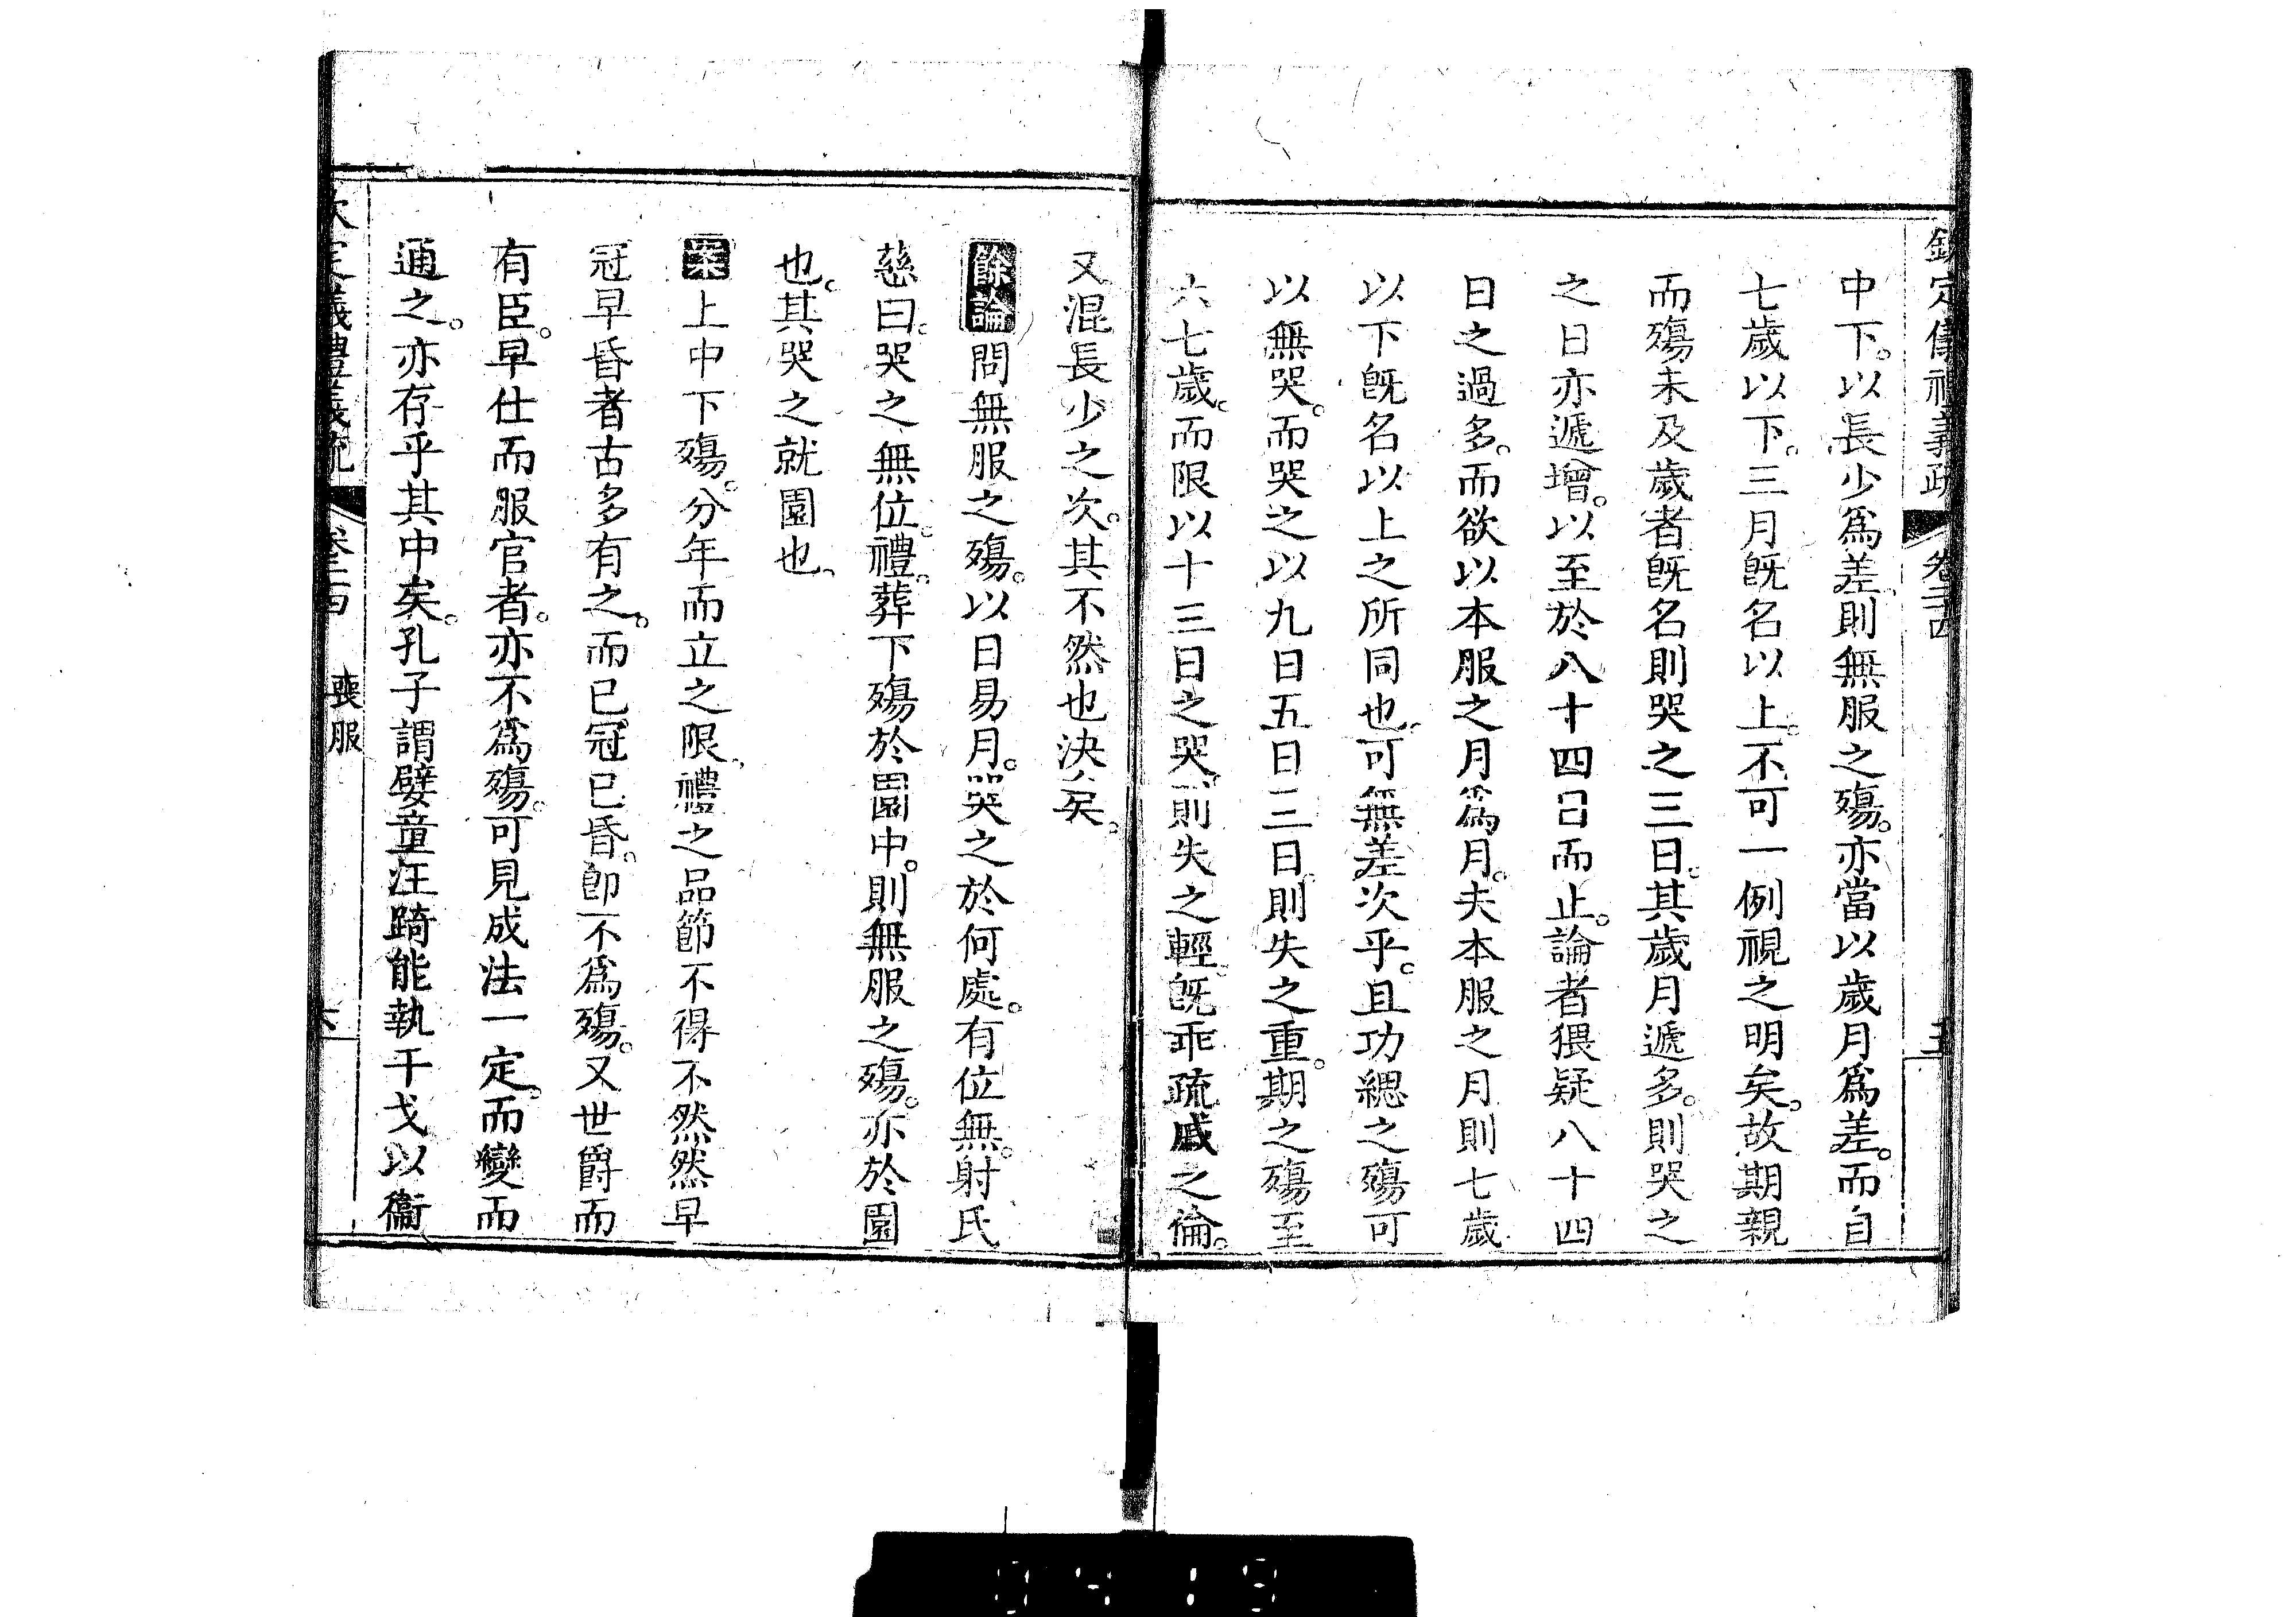 欽定儀禮義疏 卷二十四 五
中下。以長少爲差。則無服之殤。亦當以歲月爲差。而自
七歲以下。三月旣名以上。不可一例視之明矣。故期親
而殤未及歲者旣名則哭之三日。其歲月遞多。則哭之
之日亦遞增。以至於八十四日而止。論者猥疑八十四
日之過多。而欲以本服之月爲月。夫本服之月則七歲
以下旣名以上之所同也。可無差次乎。且功緦之殤可
以無哭。而哭之以九日五日三日。則失之重。期之殤至
六七歲。而限以十三日之哭。則失之輕。旣乖疏戚之倫。
又混長少之次。其不然也決矣。
餘論問無服之殤。以日易月。哭之於何處。有位無。射氏
慈曰。哭之無位。禮。葬下殤於園中。則無服之殤。亦於園
也。其哭之就園也。
案上中下殤。分年而立之限。禮之品節不得不然然早
冠早昏者古多有之。而已冠已昏。卽不爲殤。又世爵而
有臣。早仕而服官者。亦不爲殤。可見成法一定。而變而
通之。亦存乎其中矣。孔子謂嬖童汪踦能執干戈以衞
欽定儀禮義疏 卷二十四 喪服 六
0419